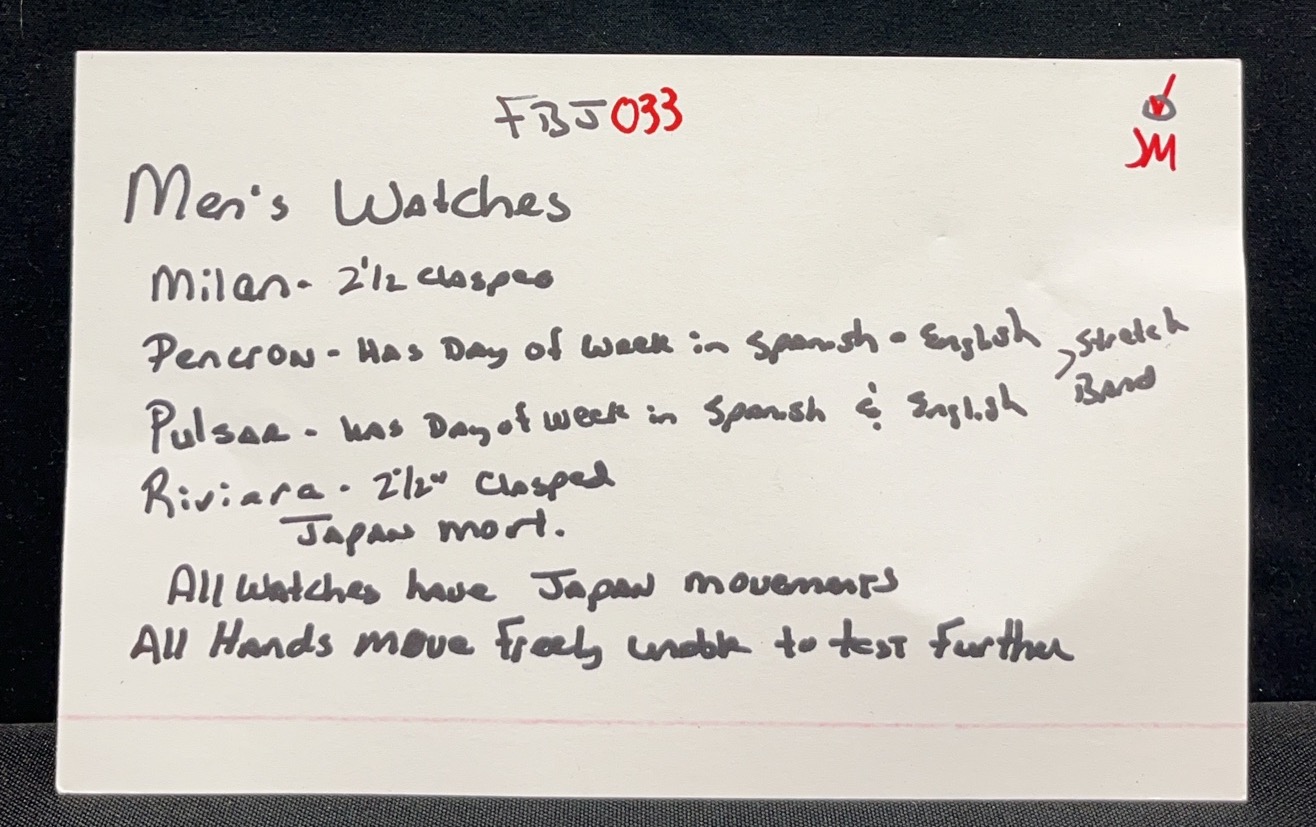 FBJ033
JM
Men's Watches
Milan - 2 1/2 clasped
Pencron - Has Day of week in Spanish - English
Stretch
Band
Pulsar - has Day of week in Spanish & English
Riviara - 2 1/2" Clasped
Japan mort.
All Watches have Japan movements
All Hands move freely unable to test further